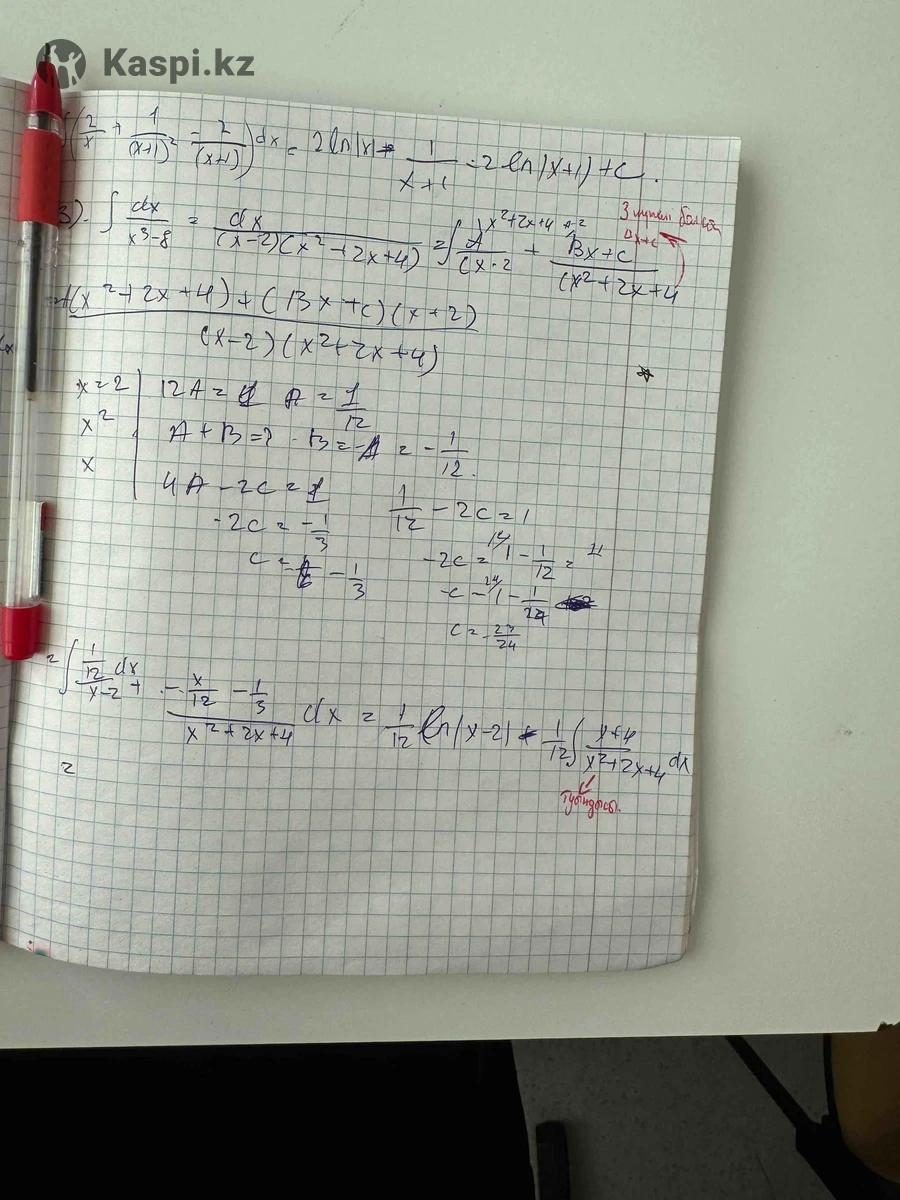 Kaspi.kz
∫(2/x + 1/(x+1)² - 2/(x+1))dx = 2 ln|x| - 1/(x+1) - 2 ln|x+1| + c.
3). ∫ dx/(x³-8) = dx/((x-2)(x²+2x+4)) = ∫ A/(x-2 + (Bx+c)/(x²+2x+4
x²+2x+4 x-2
3 болса
Bx+c
A(x²+2x+4)+(Bx+c)(x+2)
(x-2)(x²+2x+4)
x=2 | 12A=1 A=1/12
x² | A+B=? B=-A=-1/12.
x | 4A-2c=1 1/12-2c=1
-2c=-1/3 -2c=1-1/12=11
c= -1/3 -c=1-1/24
c=-23/24
=∫ (1/12 dx)/(x-2) + (-x/12 - 1/3)/(x²+2x+4) dx = 1/12 ln|x-2| - 1/12 ∫ (x+4)/(x²+2x+4) dx
туындысы.
=